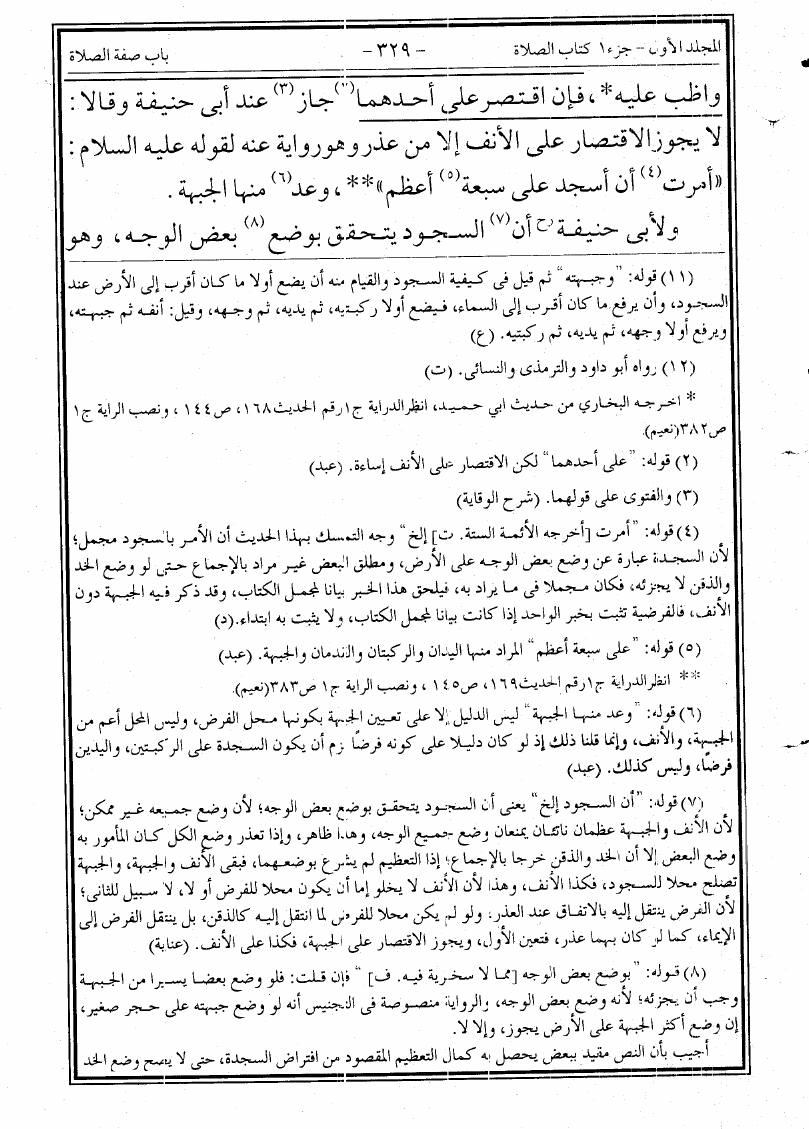 المجلد الأول - جزء ١ كتاب الصلاة - ٣٢٩ - باب صفة الصلاة
واظب عليه*، فإن اقتصر على أحدهما(٢) جاز(٣) عند أبى حنيفة وقالا:
لا يجوز الاقتصار على الأنف إلا من عذر وهو رواية عنه لقوله عليه السلام:
«أمرت(٤) أن أسجد على سبعة(٥) أعظم»**، وعد(٦) منها الجبهة.
ولأبى حنيفةرح أن(٧) السجود يتحقق بوضع(٨) بعض الوجه، وهو
(١١) قوله: "وجبهته" ثم قيل فى كيفية السجود والقيام منه أن يضع أولا ما كان أقرب إلى الأرض عند
السجود، وأن يرفع ما كان أقرب إلى السماء، فيضع أولا ركبتيه، ثم يديه، ثم وجهه، وقيل: أنفه ثم جبهته،
ويرفع أولا وجهه، ثم يديه، ثم ركبتيه. (ع)
(١٢) رواه أبو داود والترمذى والنسائى. (ت)
* اخرجه البخاري من حديث ابي حميد، انظر الدراية ج١ رقم الحديث ١٦٨، ص١٤٤ ، ونصب الراية ج١
ص٣٨٢(نعيم).
(٢) قوله: "على أحدهما" لكن الاقتصار على الأنف إساءة. (عبد)
(٣) والفتوى على قولهما. (شرح الوقاية)
(٤) قوله: "أمرت [أخرجه الأئمة الستة. ت] إلخ" وجه التمسك بهذا الحديث أن الأمر بالسجود مجمل؛
لأن السجدة عبارة عن وضع بعض الوجه على الأرض، ومطلق البعض غير مراد بالإجماع حتى لو وضع الخد
والذقن لا يجزئه، فكان مجملا فى ما يراد به، فيلحق هذا الخبر بيانا لمجمل الكتاب، وقد ذكر فيه الجبهة دون
الأنف، فالفرضية تثبت بخبر الواحد إذا كانت بيانا لمجمل الكتاب، ولا يثبت به ابتداء.(د)
(٥) قوله: "على سبعة أعظم" المراد منها اليدان والركبتان والقدمان والجبهة. (عبد)
** انظر الدراية ج١ رقم الحديث ١٦٩، ص١٤٥ ، ونصب الراية ج١ ص٣٨٣(نعيم).
(٦) قوله: "وعد منها الجبهة" ليس الدليل إلا على تعيين الجبهة بكونها محل الفرض، وليس المحل أعم من
الجبهة، والأنف، وإنما قلنا ذلك إذ لو كان دليلا على كونه فرضًا لزم أن يكون السجدة على الركبتين، واليدين
فرضًا، وليس كذلك. (عبد)
(٧) قوله: "أن السجود إلخ" يعنى أن السجود يتحقق بوضع بعض الوجه؛ لأن وضع جميعه غير ممكن؛
لأن الأنف والجبهة عظمان ناتئان يمنعان وضع جميع الوجه، وهذا ظاهر، وإذا تعذر وضع الكل كان المأمور به
وضع البعض إلا أن الخد والذقن خرجا بالإجماع؛ إذا التعظيم لم يشرع بوضعهما، فبقى الأنف والجبهة، والجبهة
تصلح محلا للسجود، فكذا الأنف، وهذا لأن الأنف لا يخلو إما أن يكون محلا للفرض أو لا، لا سبيل للثانى؛
لأن الفرض ينتقل إليه بالاتفاق عند العذر. ولو لم يكن محلا للفرض لما انتقل إليه كالذقن، بل ينتقل الفرض إلى
الإيماء، كما لو كان بهما عذر، فتعين الأول، ويجوز الاقتصار على الجبهة، فكذا على الأنف. (عناية)
(٨) قوله: "بوضع بعض الوجه [مما لا سخرية فيه. ف] " فإن قلت: فلو وضع بعضا يسيرا من الجبهة
وجب أن يجزئه؛ لأنه وضع بعض الوجه، والرواية منصوصة فى التجنيس أنه لو وضع جبهته على حجر صغير،
إن وضع أكثر الجبهة على الأرض يجوز، وإلا لا.
أجيب بأن النص مقيد ببعض يحصل به كمال التعظيم المقصود من افتراض السجدة، حتى لا يصح وضع الخد